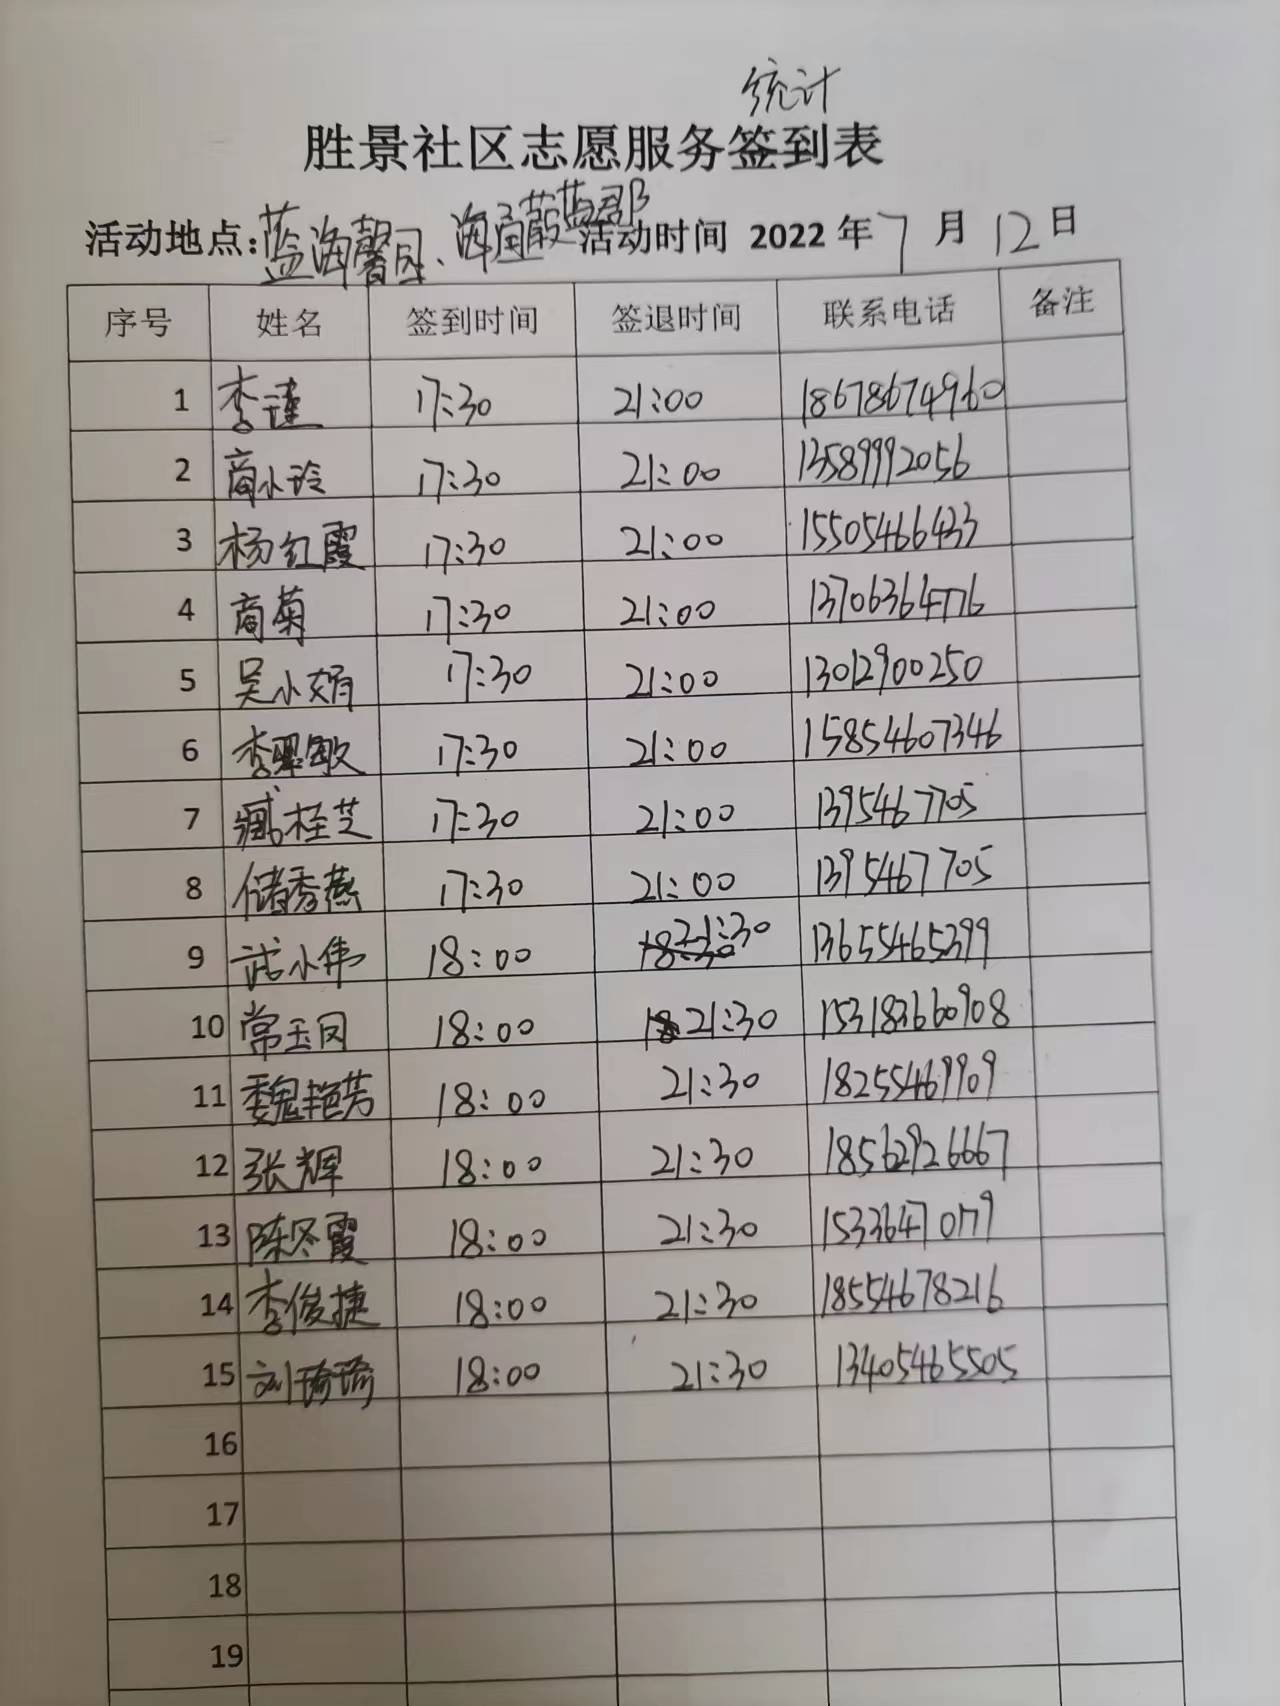 统计
胜景社区志愿服务签到表
活动地点:蓝海馨园、海通 蓝郡 活动时间 2022年7月12日
序号 姓名 签到时间 签退时间 联系电话 备注
1 李瑾 17:30 21:00 18678674960
2 商小玲 17:30 21:00 13589992056
3 杨红霞 17:30 21:00 15505466433
4 商菊 17:30 21:00 13706364776
5 吴小娟 17:30 21:00 13012900250
6 李翠敏 17:30 21:00 15854607346
7 臧桂芝 17:30 21:00 1395467705
8 储秀燕 17:30 21:00 1395467705
9 武小伟 18:00 18:30 21:30 13655465399
10 常玉凤 18:00 18 21:30 153183660908
11 魏艳芳 18:00 21:30 18255469909
12 张辉 18:00 21:30 18562926667
13 陈冬霞 18:00 21:30 15336470179
14 李俊捷 18:00 21:30 18554678216
15 刘瑜瑜 18:00 21:30 13405465505
16
17
18
19